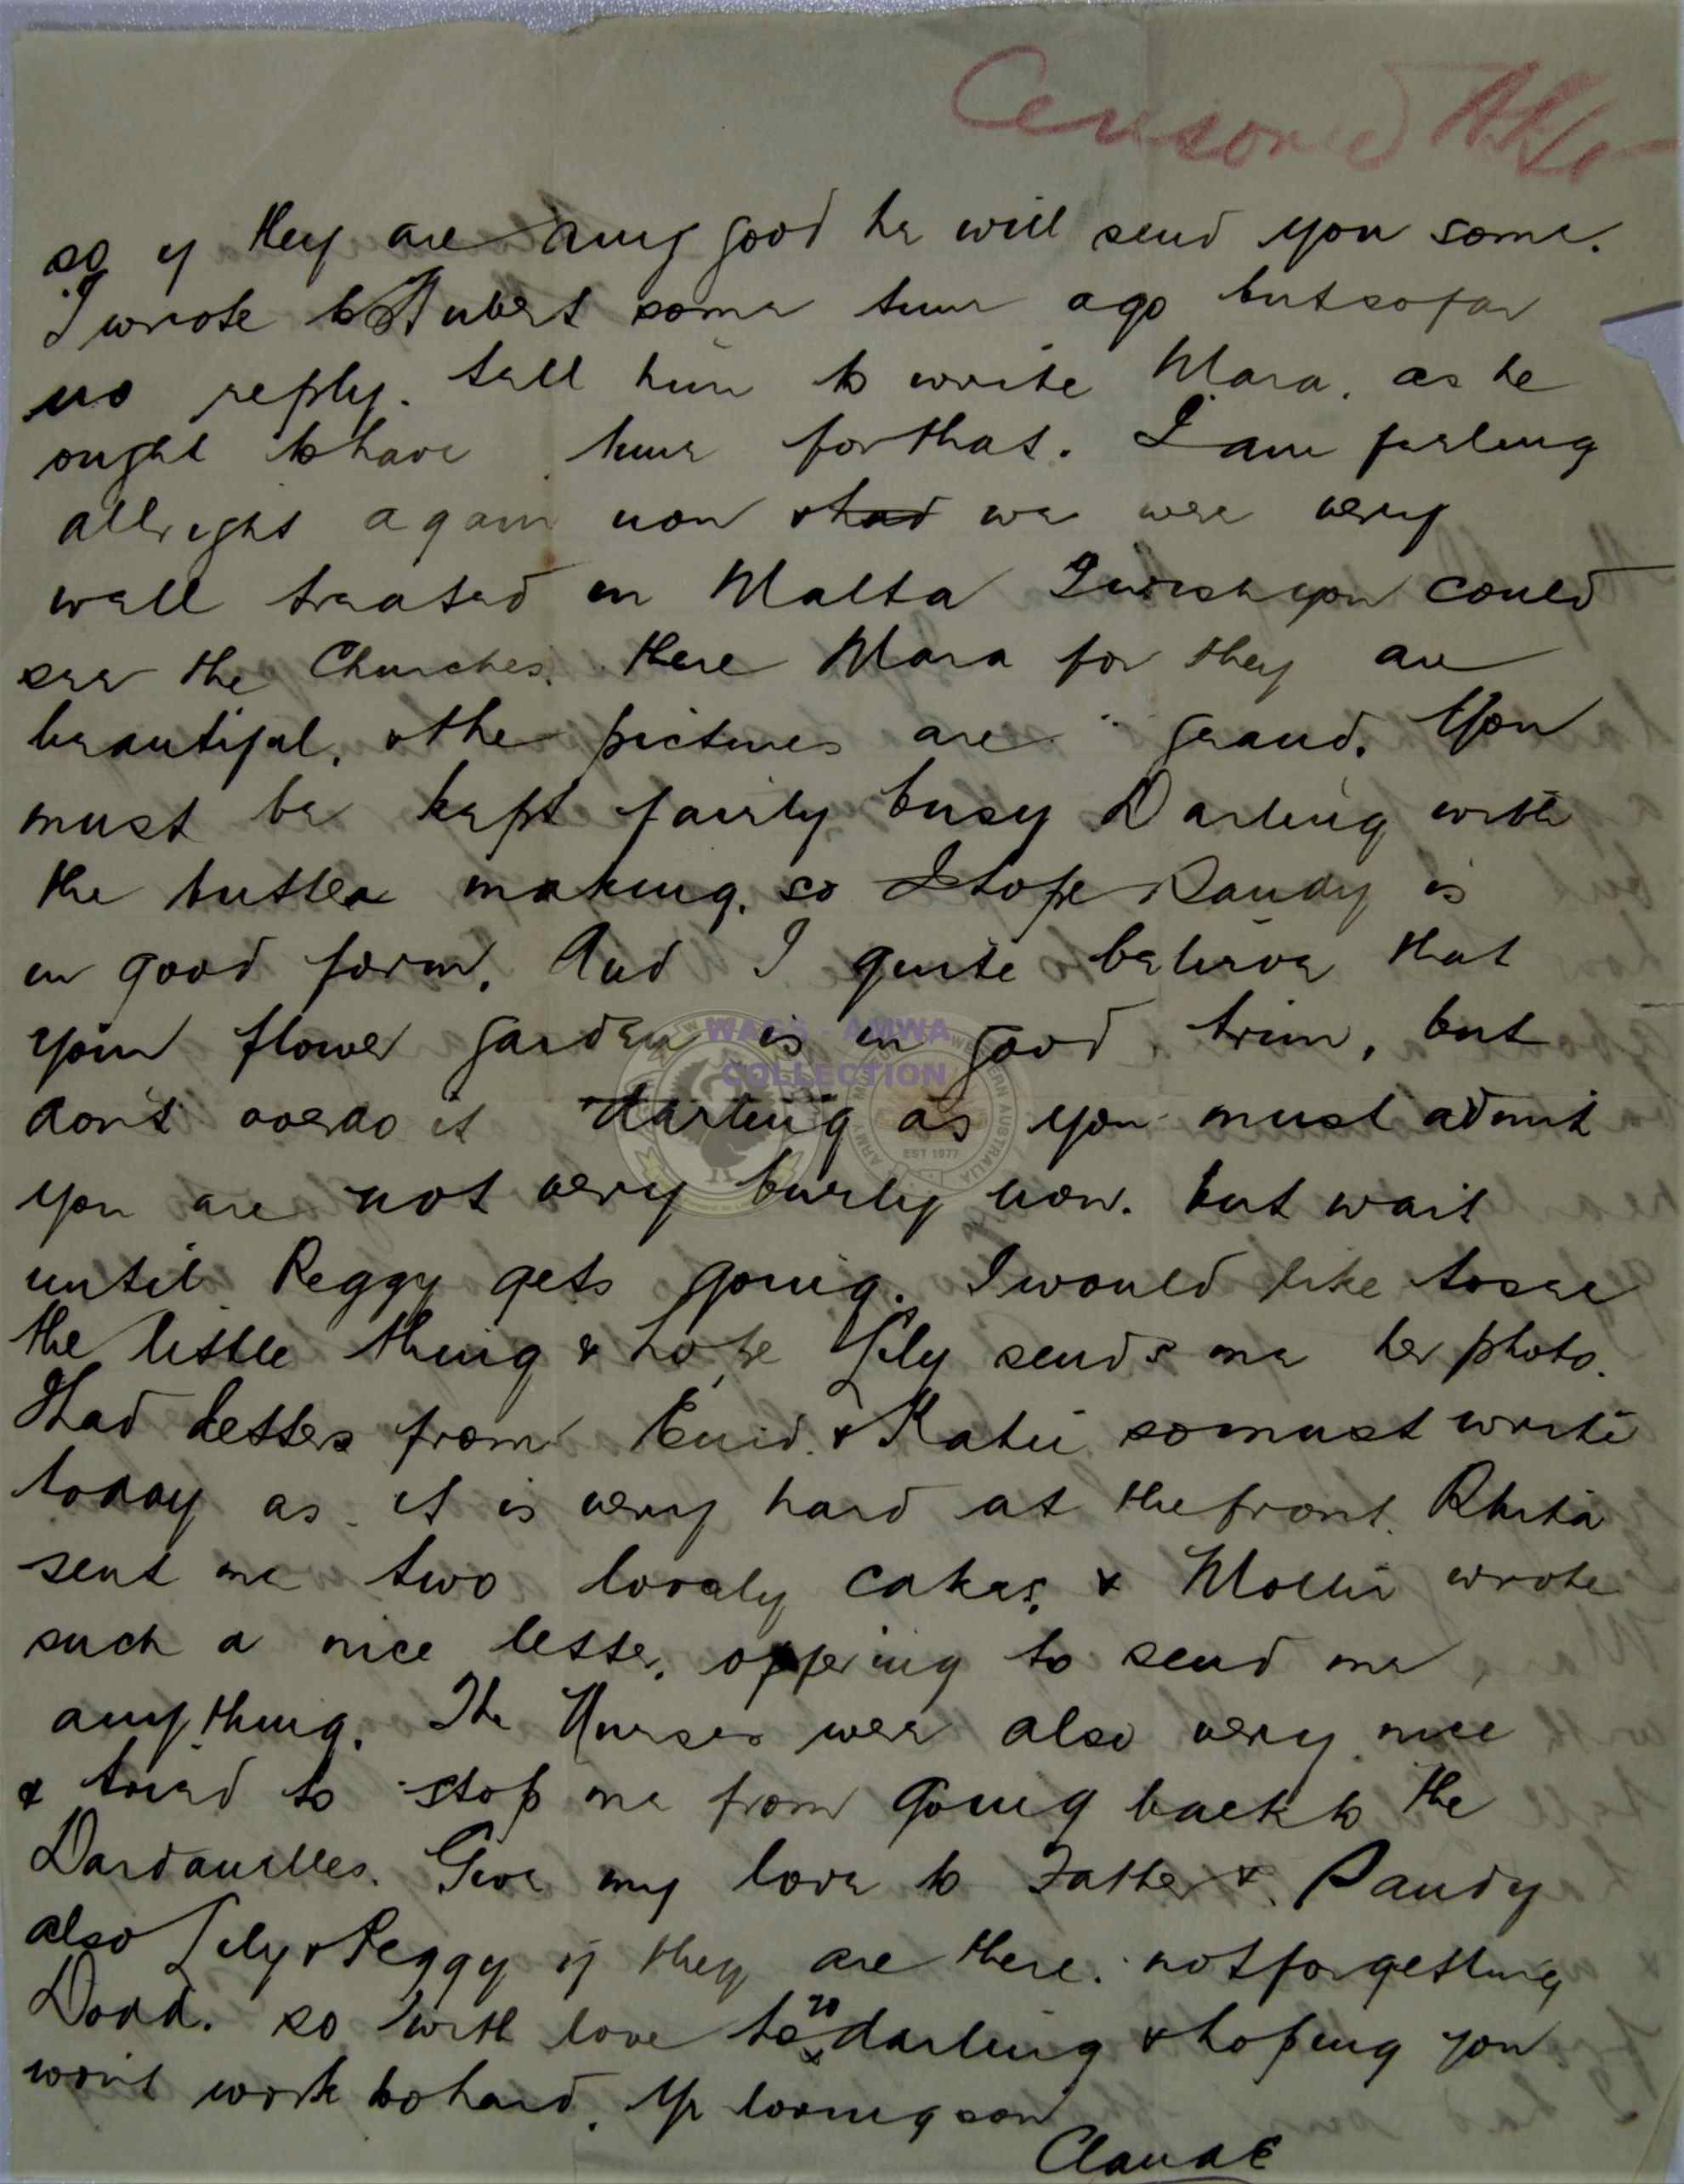 Censored
so if they are any good he will send you some.
I wrote to Hubert some time ago but so far
no reply. tell him to write Mara, as he
ought to have time for that. I am feeling
allright again now & had we were very
well treated in Malta I wish you could
see the Churches. there Mara for they are
beautiful, & the pictures are grand. You
must be kept fairly busy Darling with
the butter making, so I hope Dandy is
in good form, And I quite believe that
your flower garden is in good trim, but
don't overdo it darling as you must admit
you are not very burly now. but wait
until Peggy gets going. I would like to see
the little thing & hope Lily sends me her photo.
I had letters from Enid & Katie so must write
today as it is very hard at the front. Rhita
sent me two lovely cakes, & Mollie wrote
such a nice letter, offering to send me
anything. The Nurses were also very nice
& tried to stop me from going back to the
Dardanelles. Give my love to Father & Dandy
also Lily & Peggy if they are there. not forgetting
Dodd. so with love to darling & hoping you
won't work to hard. Yr loving son
Claude
WAGS - AMWA
COLLECTION
ARMY MUSEUM WESTERN AUSTRALIA
EST 1977